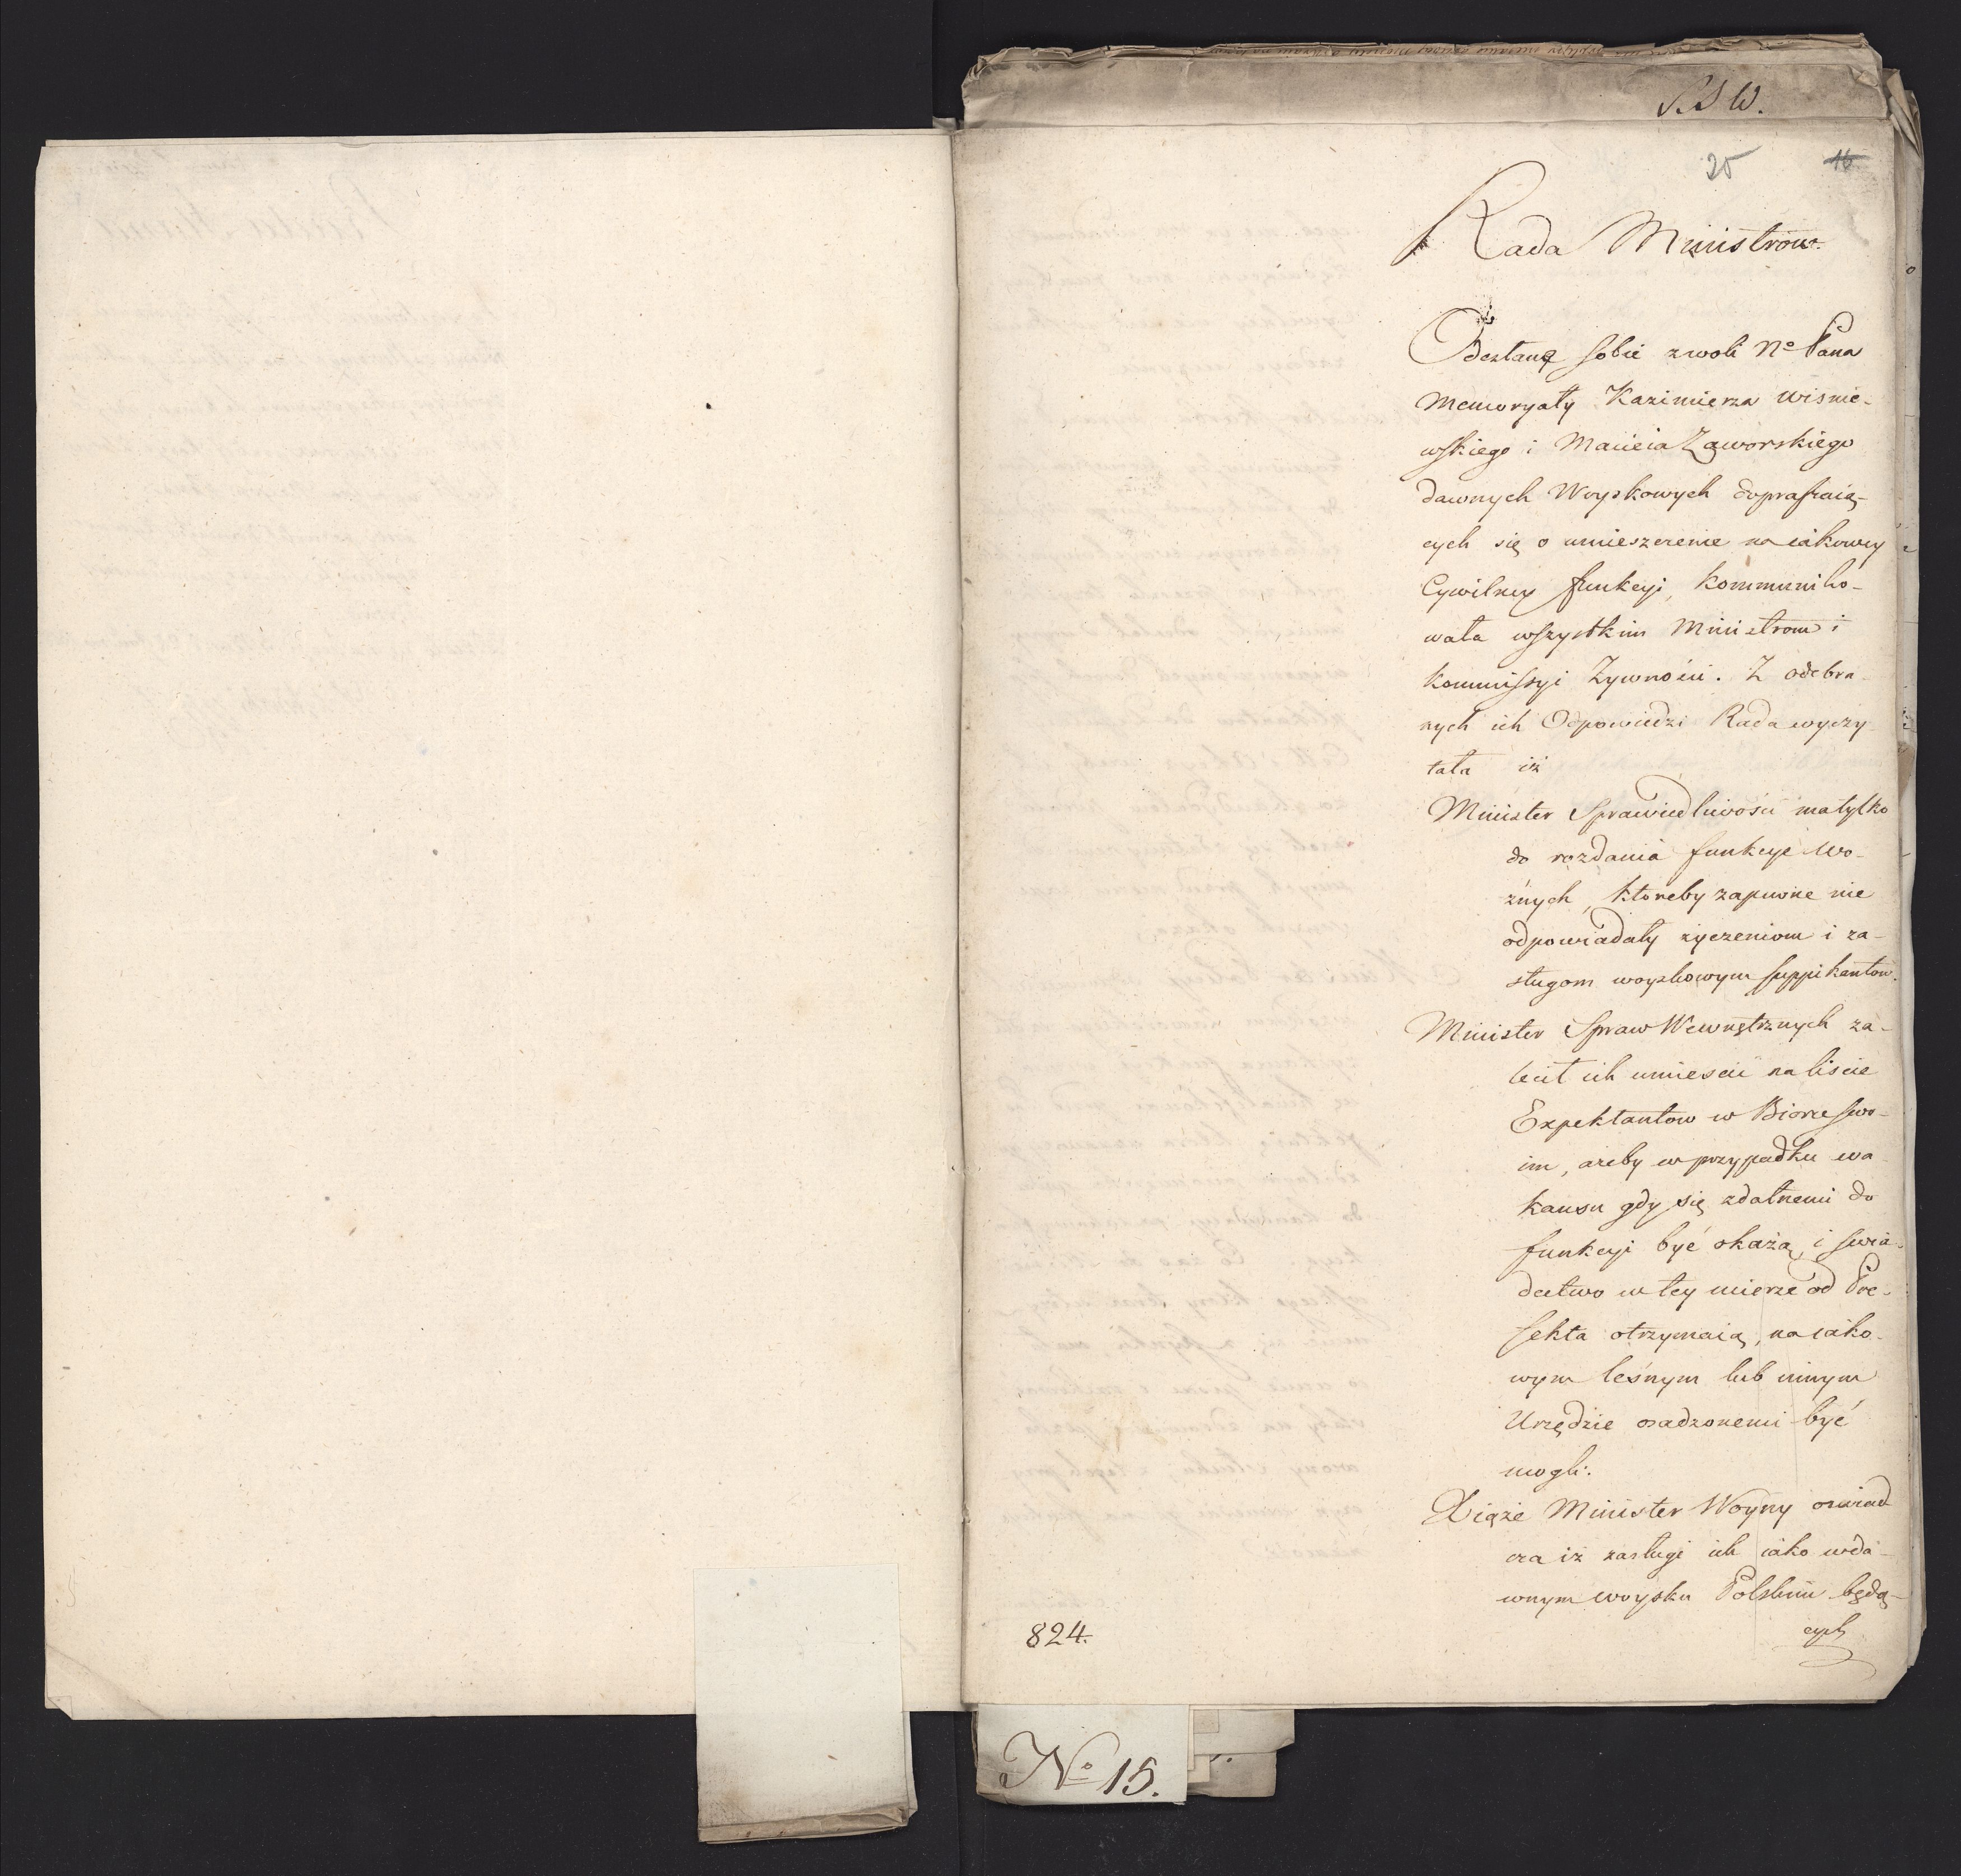 S. S W.
25 16
Rada Ministrow.
Odesłane sobie z woli No Pana
Memoryały Kazimierza Wisnie-
wskiego i Macieia Zaworskiego
dawnych Woyskowych dopraszaią-
cych się o umieszczenie na iakowey
Cywilney funkcyi, kommuniko-
wała wszystkim Ministrom i
kommissyi Zywności. Z odebra-
nych ich Odpowiedzi Rada wyczy
tała iż
Minister Sprawiedliwości ma tylko
do rozdania funkcye Wo-
źnych, ktoreby zapewne nie
odpowiadały życzeniom i za-
sługom woyskowym supplikantow.
Minister Spraw Wewnętrznych za-
lecił ich umieścić na liście
Expektantow w Biorze swo-
im, ażeby w przypadku wa
kansu gdy się zdatnemi do
funkcyi być okażą, i świa-
dectwo w tey mierze od Pre-
fekta otrzymaią, na iako-
wym leśnym lub innym
Urzędzie osadzonemi być
mogli.
Xiąże Minister Woyny oswiad
cza iż zasługi ich iako w da-
wnym woysku Polskim będą-
cych
824.
No 15.